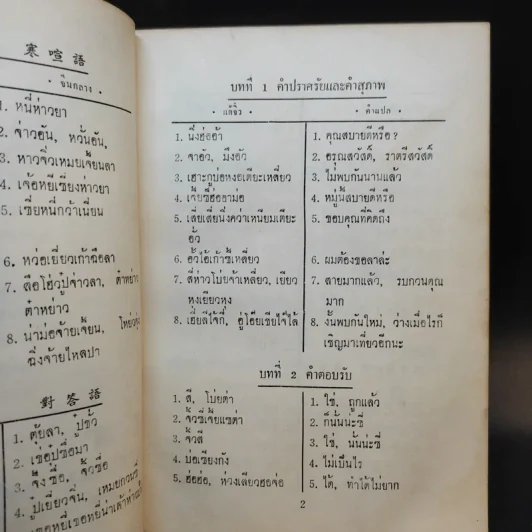 寒喧語
· จีนกลาง ·
1. หนี่ห่าวยา
2. จ่าวอัน, หวั่นอัน,
3. หาวจิ่วเหมยเจี้ยนลา
4. เจ้อหยีเซี่ยงห่าวยา
5. เซี่ยหนี่กว้าเนี่ยน
6. หว่อเยี่ยวเก้าฉือลา
7. สือโฮ่วปู้จ่าวลา, ต๋าหย่าง
ต๋าหย่าว
8. น่าม่อจ้ายเจี้ยน,
ฉิ่งจ้ายไหลปา
對答語
1. ตุ้ยลา, ปู๋ชั่ว
2. เซ่อปู๋ซื่อมา
3. จิ้ว ซื่อ, จิ้วซื่อ
4. ปู๋เยี่ยวจิ่น,
บทที่ 1 คำปราศรัยและคำสุภาพ
· แต้จิ๋ว ·
· คำแปล ·
1. นึ่งฮ่ออ้า
1. คุณสบายดีหรือ?
2. จาอัว, มึ่งอัว
2. อรุณสวัสดิ์, ราตรีสวัสดิ์
3. เฮาะกู่บ่อหงอเตียะเหลี่ยว
3. ไม่พบกันนานแล้ว
4. เจี้ยซี่ฮ่อยาม่อ
4. หมู่นี้สบายดีหรือ
5. เสี่ยเสี่ยนึ่งคว่าเหนียมเตียะ
5. ขอบคุณที่คิดถึง
อั้ว
6. อั้วไอ้เก้าซี้เหลี่ยว
6. ผมต้องขอลาล่ะ
7. สี่ห่าวโบ่ยจ้าเหลี่ยว, เยียว
7. สายมากแล้ว, รบกวนคุณ
หงเยียวหง
มาก
8. เฮี่ยลี่ไจ้กี่, อู่โอ๊ยเชียไจ้ไล้
8. งั้นพบกันใหม่, ว่างเมื่อไรก็
เชิญมาเที่ยวอีกนะ
บทที่ 2 คำตอบรับ
1. สี่, โบ่ยต่า
1. ใช่, ถูกแล้ว
2. จิ้วซี่เจี้ยแซต่า
2. ก็นั้นน่ะซี่
3. จิ้วสี่
3. ใช่, นั้นน่ะซี่
4. บ่อเซียงกัง
4. ไม่เป็นไร
5. ฮ่อฮ่อ, หวงเลี่ยวฮอจ่อ
5. ได้, ทำได้ไม่ยาก
2